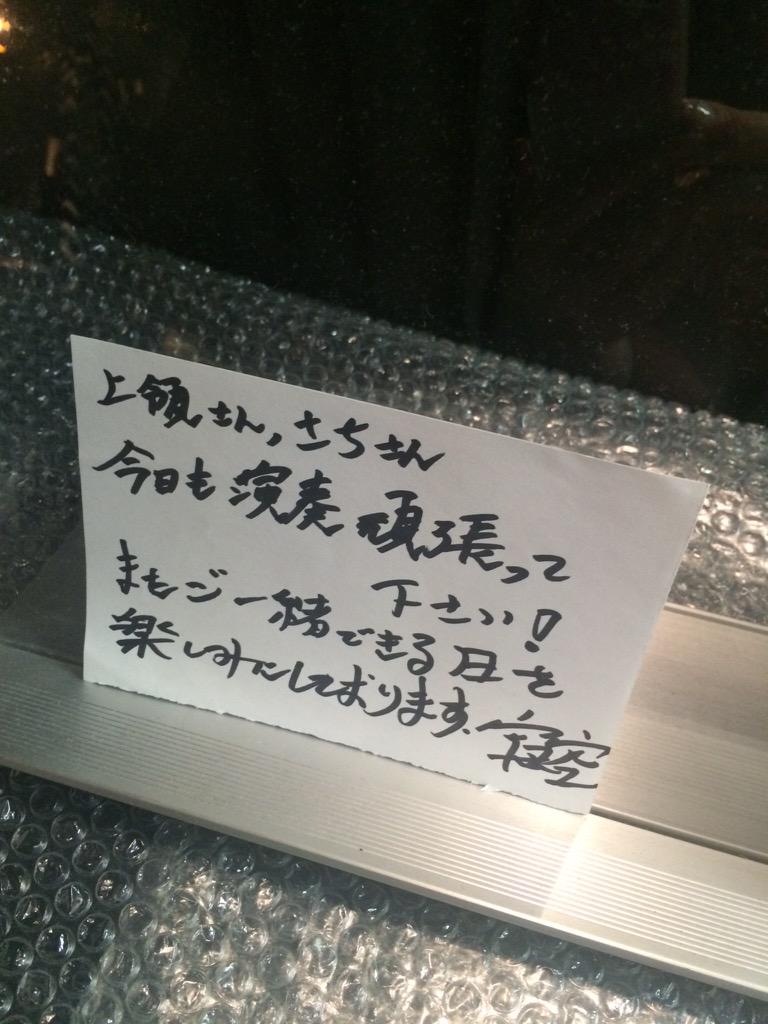 上領さん,さちさん
今日も演奏頑張って
下さい!
またご一緒できる日を
楽しみにしております。